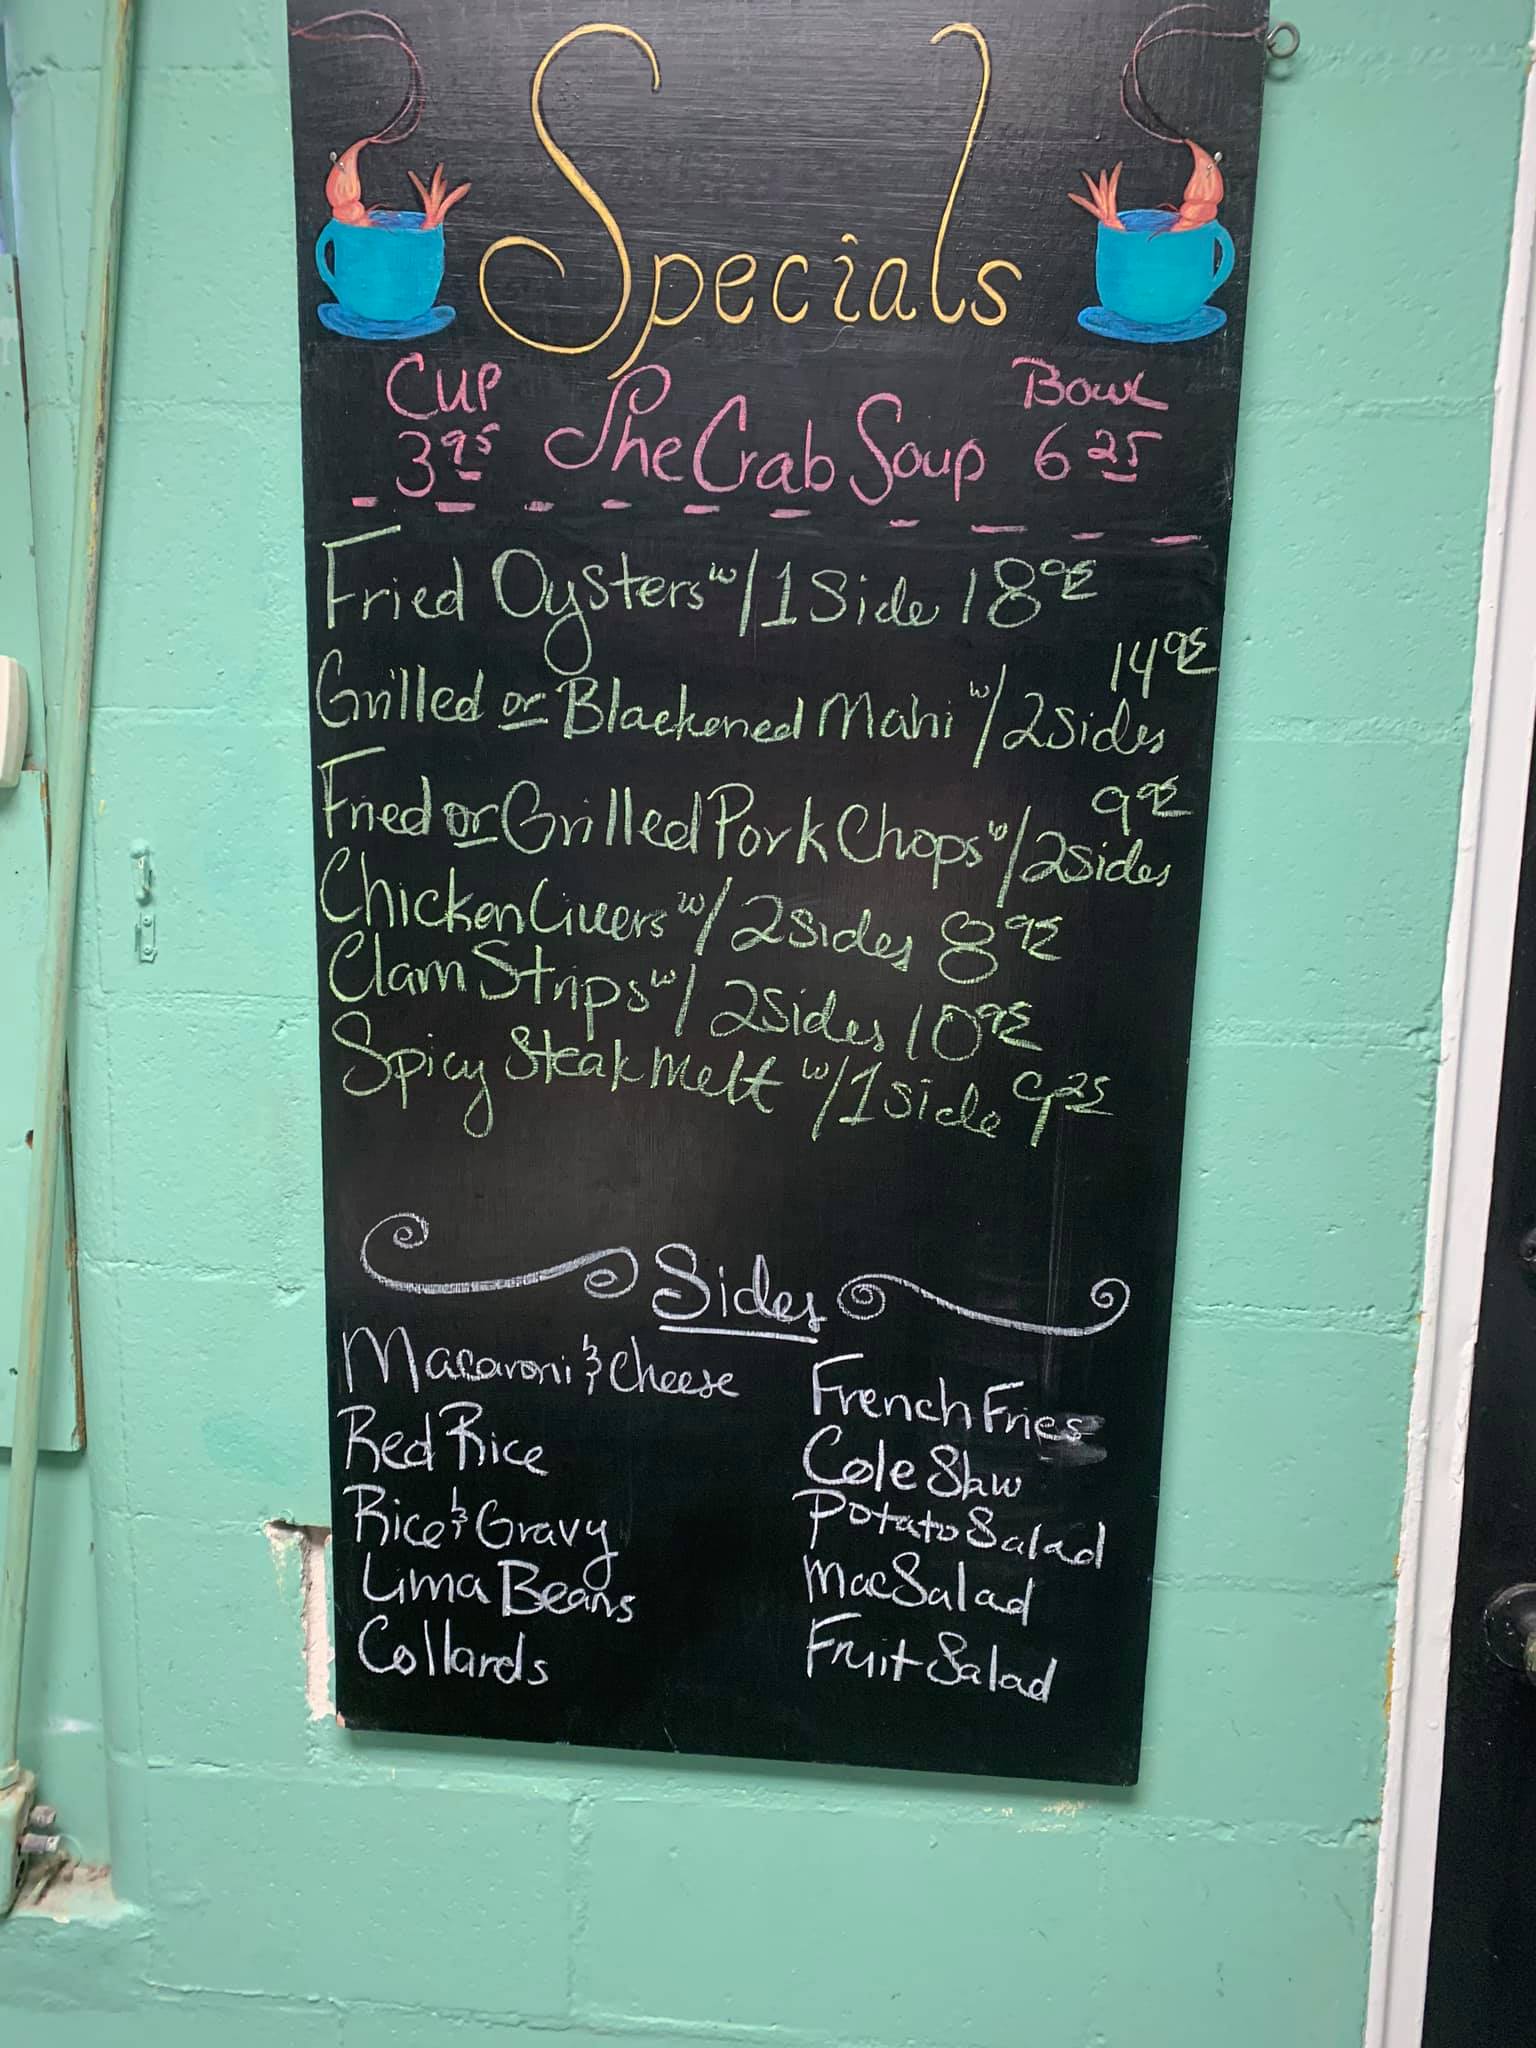 Specials
Cup She Crab Soup Bowl
3.95 6.25
Fried Oysters w/ 1 Side 18.95
14.95
Grilled or Blackened Mahi w/ 2 Sides
9.95
Fried or Grilled Pork Chops w/ 2 Sides
Chicken Livers w/ 2 Sides 8.95
Clam Strips w/ 2 Sides 10.95
Spicy Steak Melt w/ 1 Side 9.25
Sides
Macaroni & Cheese
Red Rice
Rice & Gravy
Lima Beans
Collards
French Fries
Cole Slaw
Potato Salad
Mac Salad
Fruit Salad